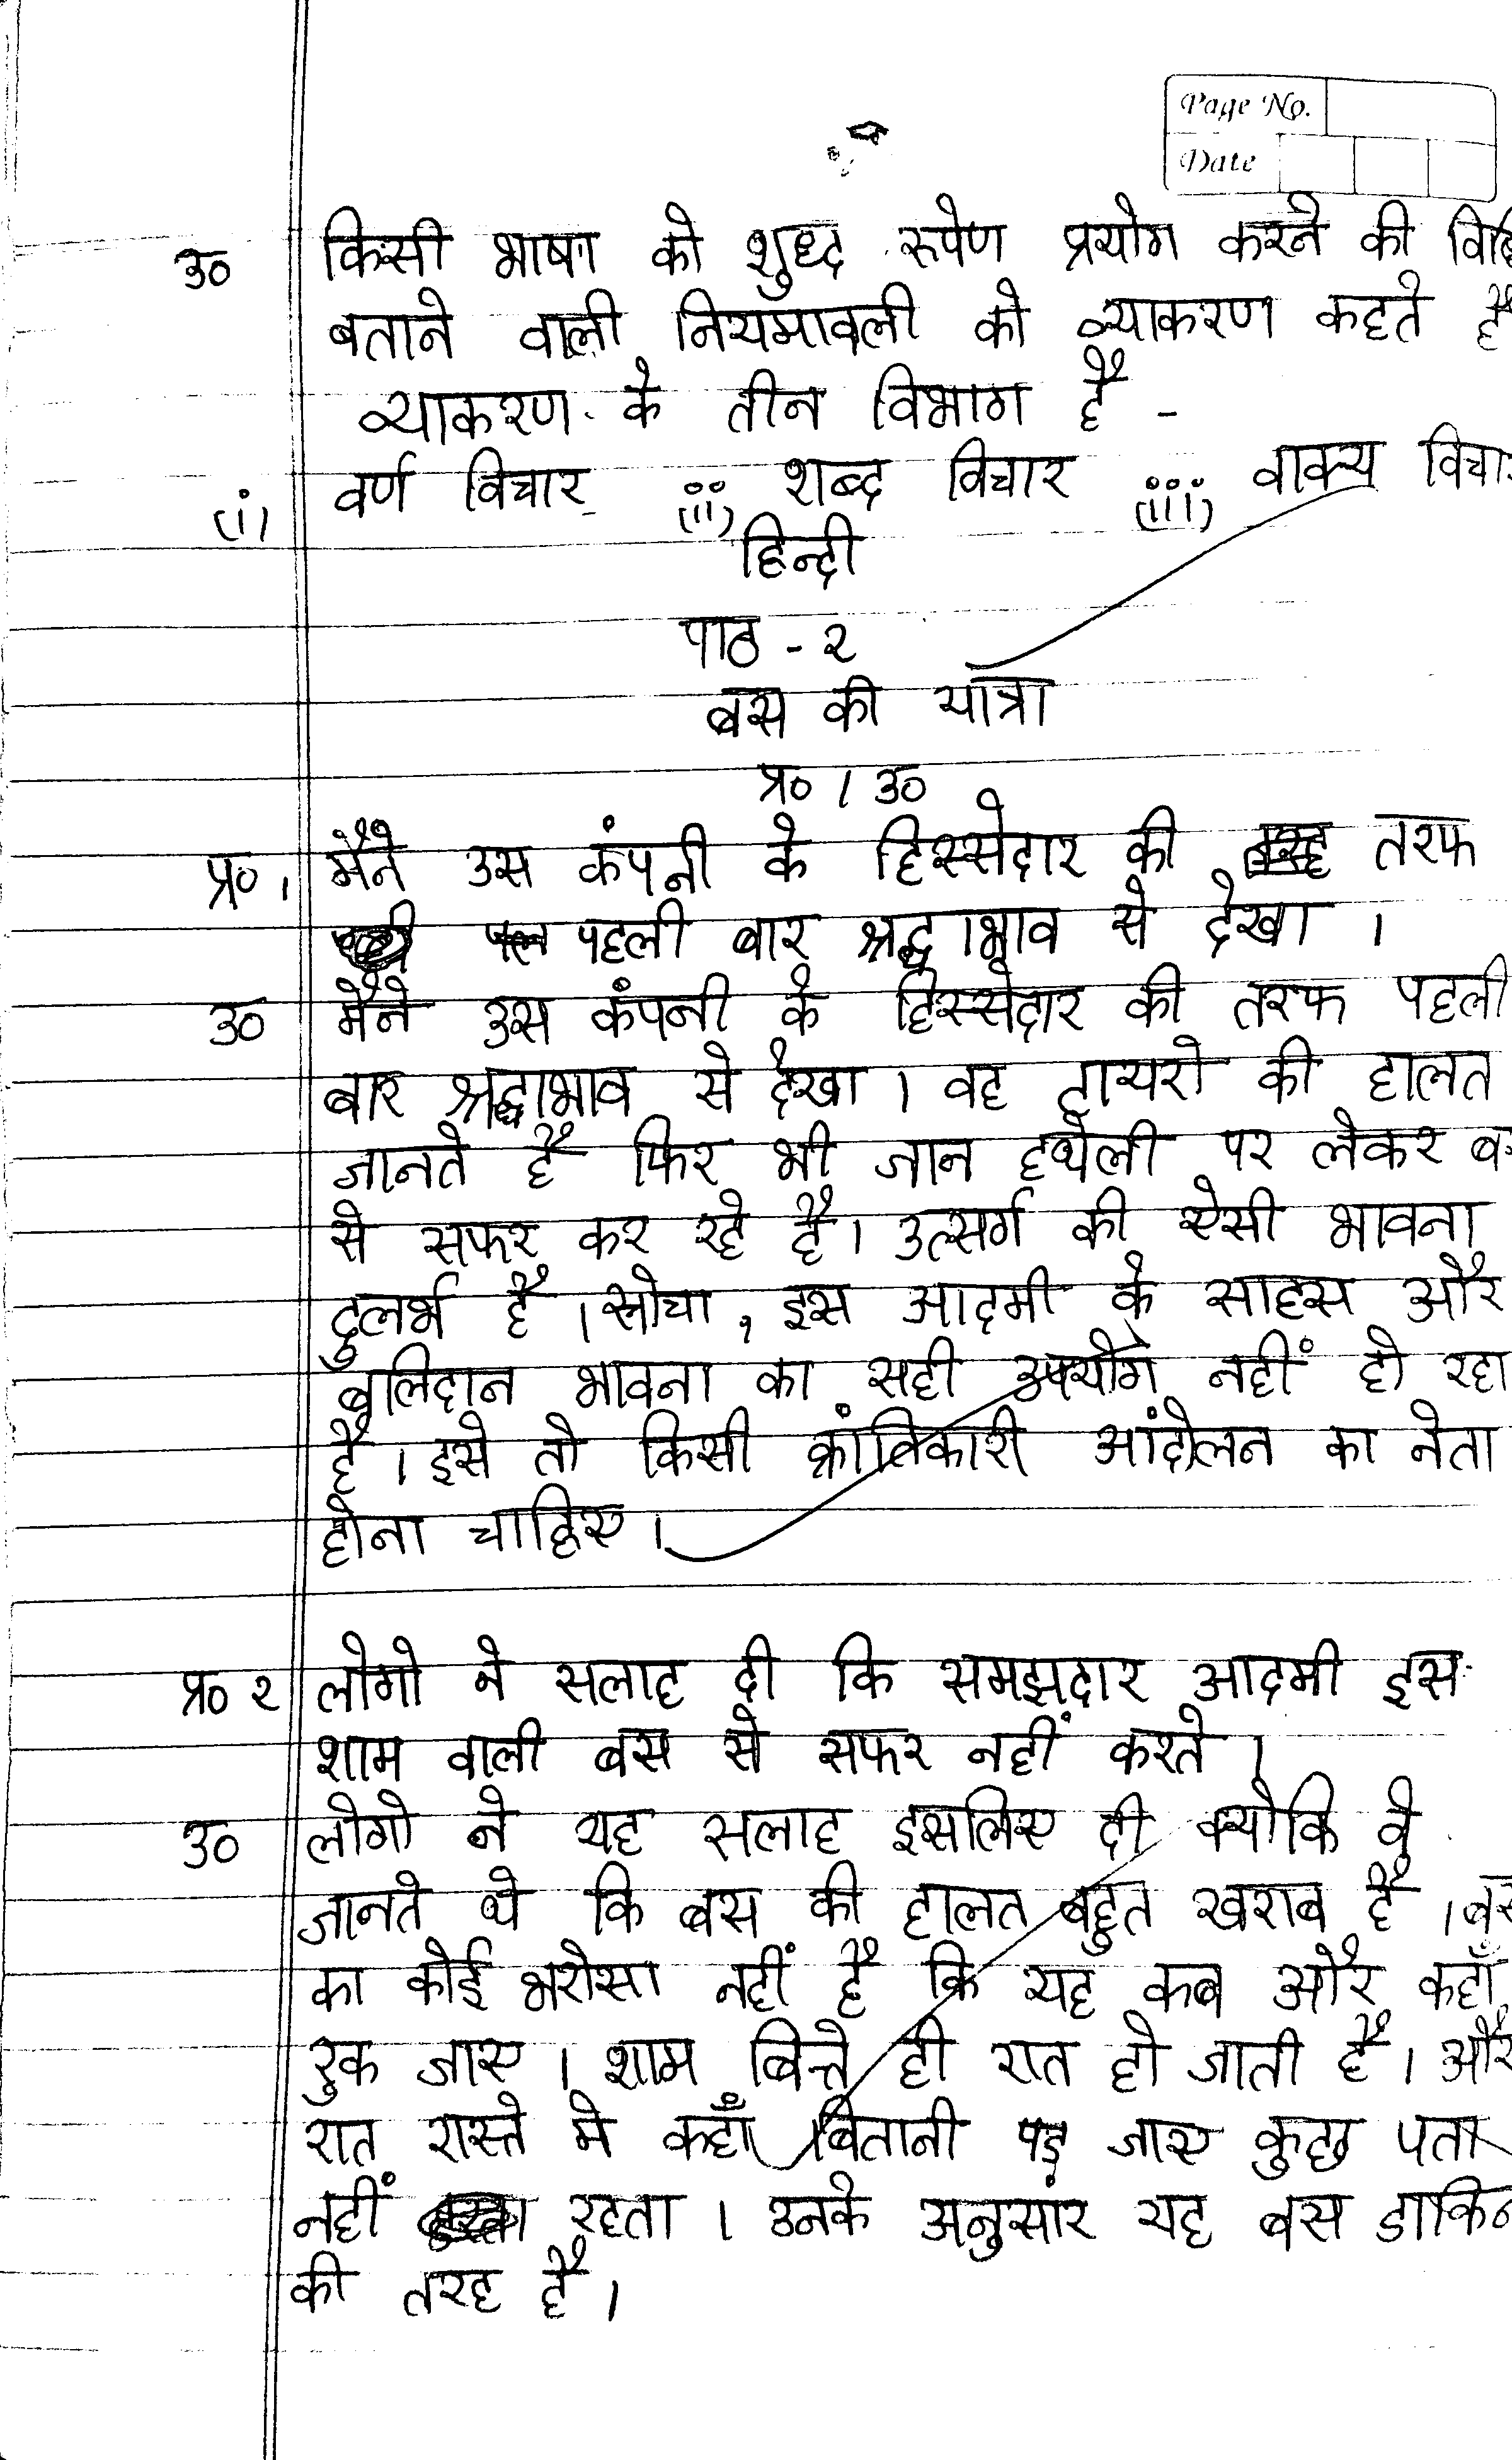 Page No.
Date
उ० किसी भाषा को शुध्द रुपेण प्रयोग करने की
बताने वाली नियमावली को व्याकरण कहते है
व्याकरण के तीन विभाग है -
(i) वर्ण विचार (ii) शब्द विचार (iii) वाक्य
हिन्दी
पाठ - २
बस की यात्रा
प्र० / उ०
प्र० १ मैने उस कंपनी के हिस्सेदार की तरफ
पहली बार श्रद्धाभाव से देखा ।
उ० मैने उस कंपनी के हिस्सेदार की तरफ पहली
बार श्रद्धाभाव से देखा । वह टायरो की हालत
जानते है फिर भी जान हथेली पर लेकर
से सफर कर रहे है। उत्सर्ग की ऐसी भावना
दुलर्भ है । सोचा, इस आदमी के साहस और
बलिदान भावना का सही उपयोग नहीं हो रहा
है । इसे तो किसी क्रांतिकारी आंदोलन का नेता
होना चाहिए ।
प्र० २ लोगो ने सलाह दी कि समझदार आदमी इस
शाम वाली बस से सफर नहीं करते ।
उ० लोगो ने यह सलाह इसलिए दी क्योकि वे
जानते थे कि बस की हालत बहुत खराब है ।
का कोई भरोसा नहीं है कि यह कब और कहाँ
रुक जाए । शाम बित्ते ही रात हो जाती है । और
रात रास्ते मे कहाँ बितानी पड़ जाए कुछ पता
नहीं रहता । उनके अनुसार यह बस
की तरह है ।